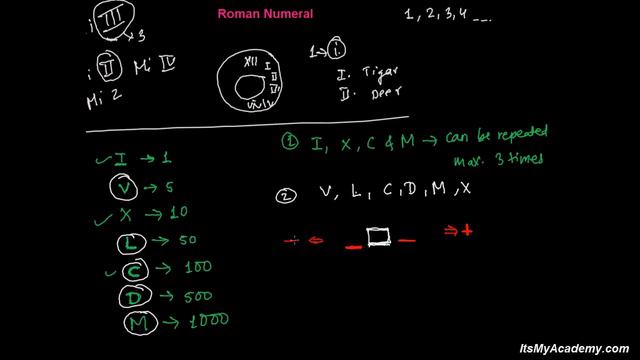 Roman Numeral
i III
3
1, 2, 3, 4 ---
i II Mi IV
Mi 2
XII I
II
1→ i.
I. Tigar
II. Deer
I → 1
V → 5
X → 10
L → 50
C → 100
D → 500
M → 1000
① I, X, C & M → can be repeated
max. 3 times
② V, L, C, D, M, X
- ⇐ _ _ ⇒ +
ItsMyAcademy.com